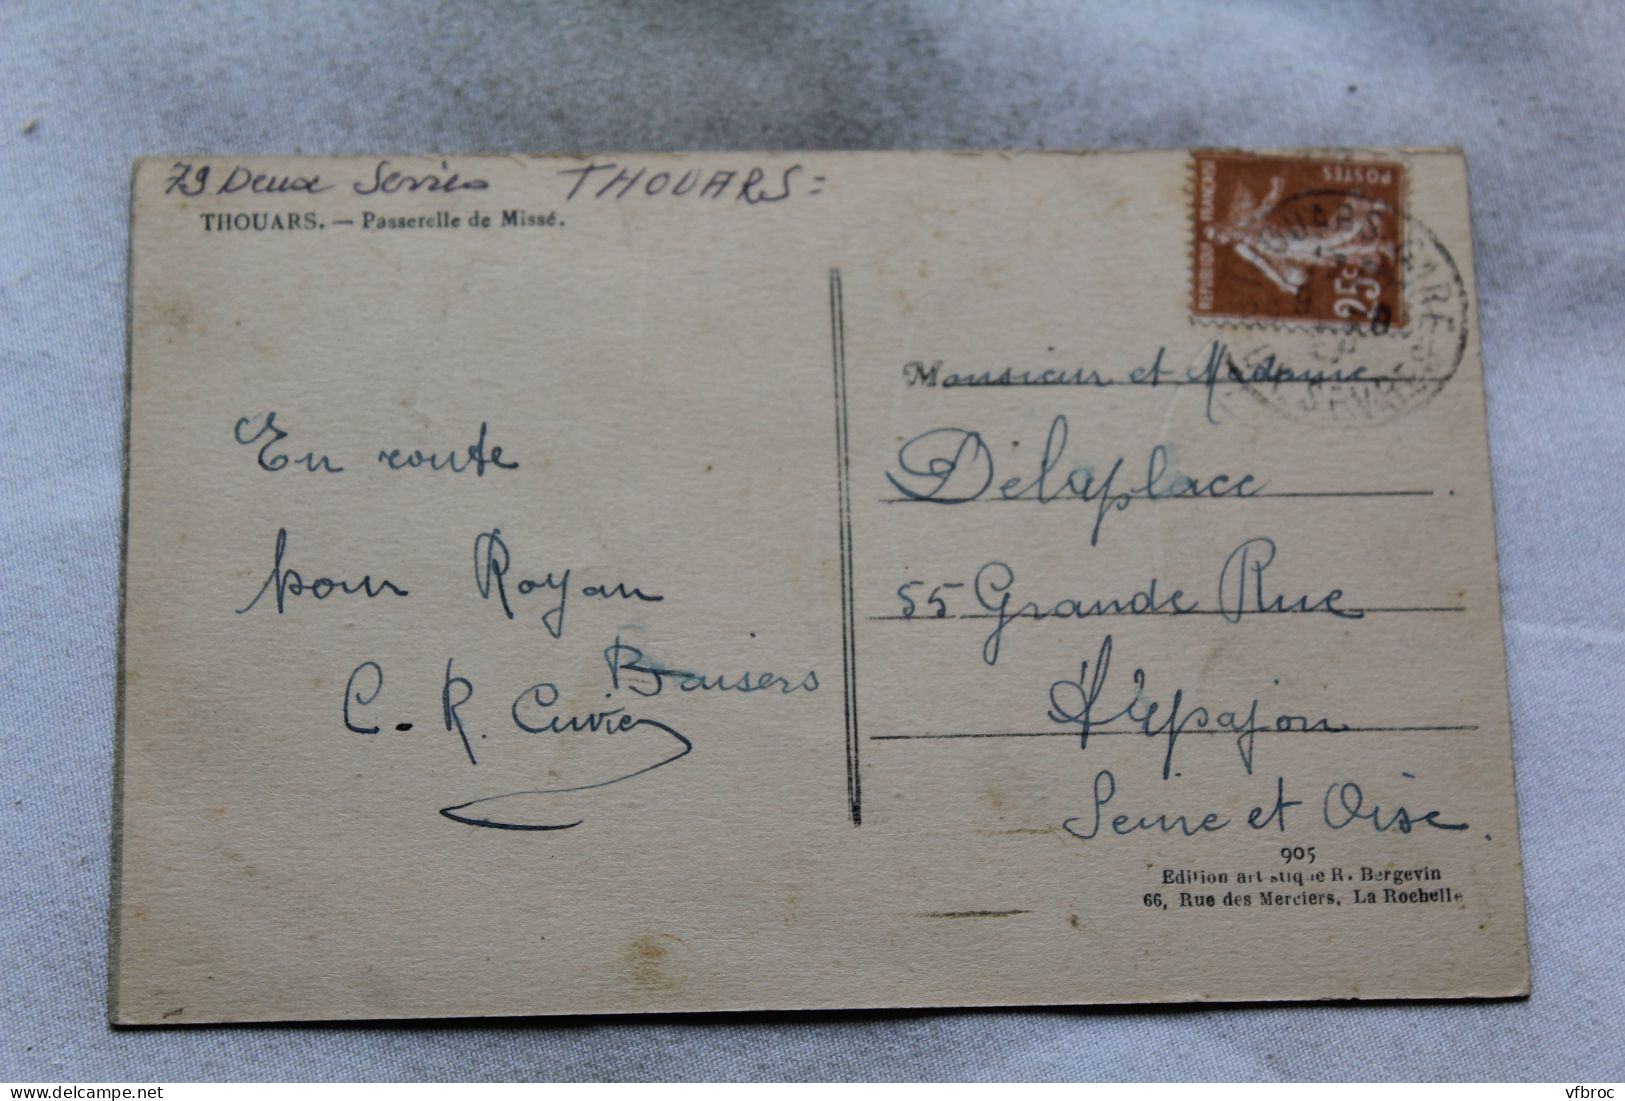 79 Deux Sevres THOUARS =
THOUARS. — Passerelle de Missé.
REPUBLIQUE FRANÇAISE
POSTES
25c
THOUARS GARE
SEVRES
En route
pour Royan
Baisers
C. R. Cuvier
Monsieur et Madame
Delaplace
55 Grande Rue
Arpajon
Seine et Oise.
905
Edition artistique R. Bergevin
66, Rue des Merciers, La Rochelle
vfbroc